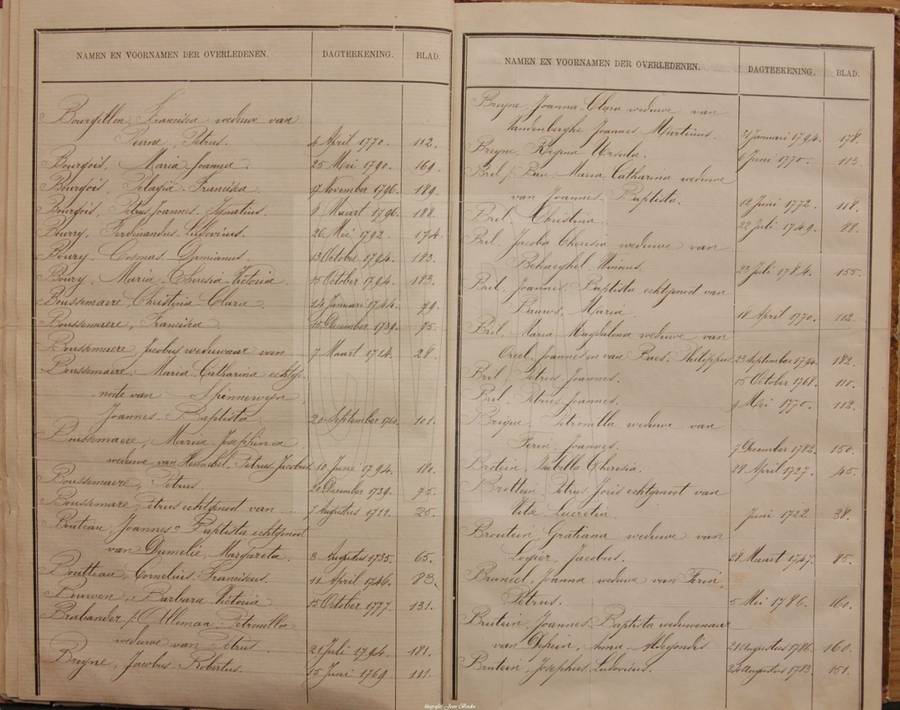 NAMEN EN VOORNAMEN DER OVERLEDENEN. DAGTEEKENING. BLAD.
Bourgillon, Francisca weduwe van
Petrus. 6 April 1770. 112.
Bourgois, Maria Joanna 25 Mei 1790. 169.
Bourgois, Pelagia Francisca. 9 November 1796. 189.
Bourgois, Petrus Joannes Ignatius. 8 Maart 1796. 188.
Boury, Ferdinandus Ludovicus. 26 Mei 1792. 174.
Boury, Cosmas Damianus. 13 October 1794. 183.
Boury, Maria Theresia Victoria 15 October 1794. 183.
Boussemaere Christina Clara 24 Januari 1744. 79.
Boussemaere, Francisca 15 December 1739. 75.
Boussemaere, Jacobus weduwaar van 7 Maart 1714. 28.
Boussemaere, Maria Catharina echtge-
noote van Spinnewyn
Joannes Baptista 20 September 1760. 101.
Bussemaere, Maria Josephina
weduwe van Petrus Jacobus 10 Juni 1794. 180.
Boussemaere, Petrus. December 1739. 75.
Boussemare Petrus echtgenoot van 7 Augustus 1711. 25.
Bouteau, Joannes Baptista echtgenoot
van Dumelie, Margareta. 8 Augustus 1735. 65.
Boutteau, Cornelius Franciscus. 11 April 1746. 83.
Bouven, Barbara Victoria 15 October 1777. 131.
Brabander f. Alleman Petronilla
weduwe van Petrus. 21 Juli 1794. 181.
Breyne, Jacobus Robertus. 15 Juni 1769. 111.
NAMEN EN VOORNAMEN DER OVERLEDENEN. DAGTEEKENING. BLAD.
Breyne, Joanna Clara weduwe van
Vandenberghe Joannes Martinus. 21 Januari 1794. 178.
Breyne, Regina Ursula. 6 Juni 1770. 113.
Bril f. Bau, Maria Catharina weduwe
van Joannes Baptista. 12 Juni 1772. 118.
Bril Christina. 22 Juli 1749. 88.
Bril, Jacoba Theresia weduwe van
Behaeghel 23 Juli 1784. 155.
Bril, Joannes Baptista echtgenoot van
Bauws, Maria 18 April 1770. 112.
Bril, Maria Magdalena weduwe van
Joannes en van Baes, Philippus 23 September 1794. 182.
Bril, Petrus Joannes. 15 October 1768. 110.
Bril, Petrus Joannes. 9 Mei 1770. 112.
Brique, Petronilla weduwe van
Ferin, Joannes. 7 December 1782. 150.
Brotein, Isabella Theresia. 28 April 1727. 45.
Brottein, Petrus Joris echtgenoot van
Lucretia. Juni 1722. 38.
Broutein, Gratiana weduwe van
Logier, Jacobus. 28 Maart 1747. 85.
Bruneel, Joanna weduwe van Ferin
Petrus. 5 Mei 1786. 160.
Brutein, Joannes Baptista weduwenaar
van Anna Aldegondis 21 Augustus 1786. 160.
Brutein, Josephus Ludovicus. Augustus 1783. 151.